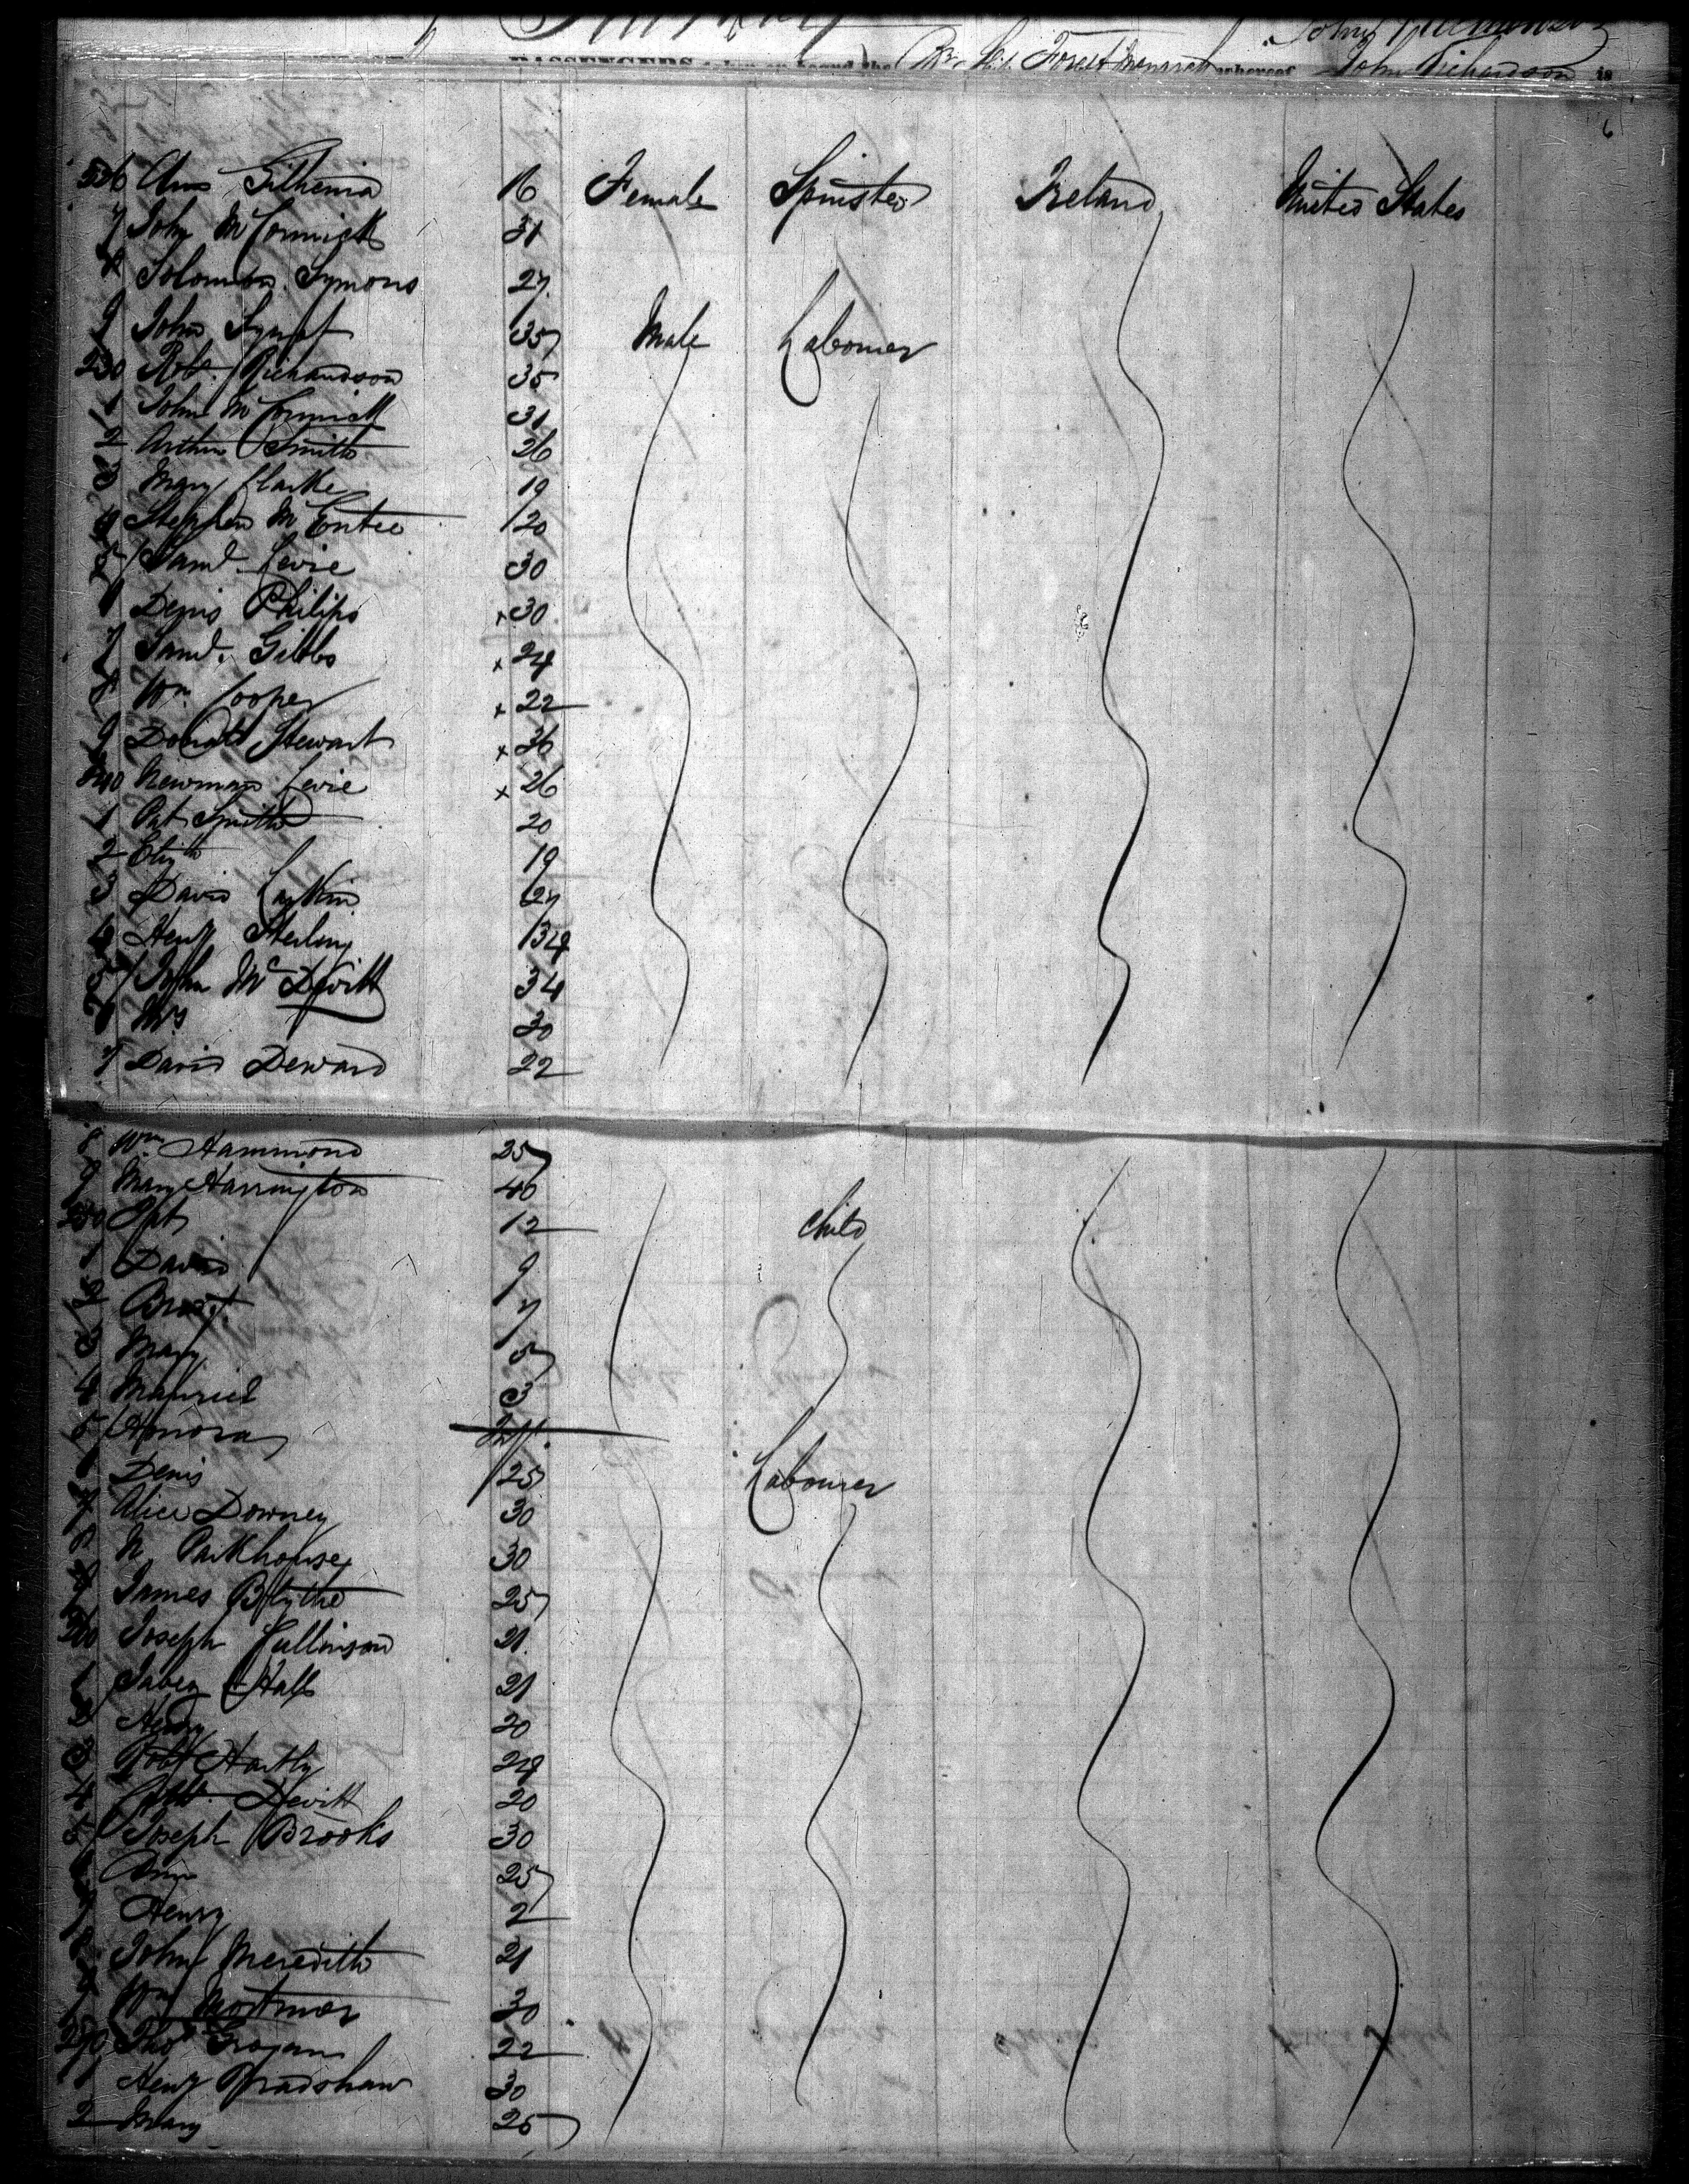 PASSENGERS taken on board the Br. Ship Forest Monarch whereof John Richardson is
6
Ann 16 Female Spinster Ireland United States
7 John McCormick 31
8 Solomon Symons 27
9 John 35 Male Labourer
230 Robt. Richardson 35
1 John McCormick 31
2 Arthur Smith 26
3 Mary Clarke 19
4 Stephen McEntee 20
5 Saml. Levie 30
6 Denis Philips x 30
7 Saml. Gibbs x 24
8 Wm. Cooper x 22
9 Donald Stewart x 36
240 Newman Levie x 26
1 Pat Smith 20
2 Elizth 19
3 David Larkin 27
4 Heny Sterling 34
5 John McDevitt 34
6 Mrs 30
7 David Deward 22
8 Wm. Hammond 25
9 Mary Harrington 40
250 12 Child
1 David 9
2 7
3 Mary 5
4 3
5 Honora Inft.
6 Denis 25 Labourer
7 Alice Downey 30
8 Parkhouse 30
9 James Blythe 25
260 Joseph Cullinson 21
1 Jabez Hall 21
2 Henry 20
3 Robt Hartly 24
4 Devitt 20
5 Joseph Brooks 30
6 Ann 25
7 Henry 2
8 John Meredith 21
9 Wm Mortimer 30
270 Thos Grogan 22
1 Heny Bradshaw 30
2 Mary 25